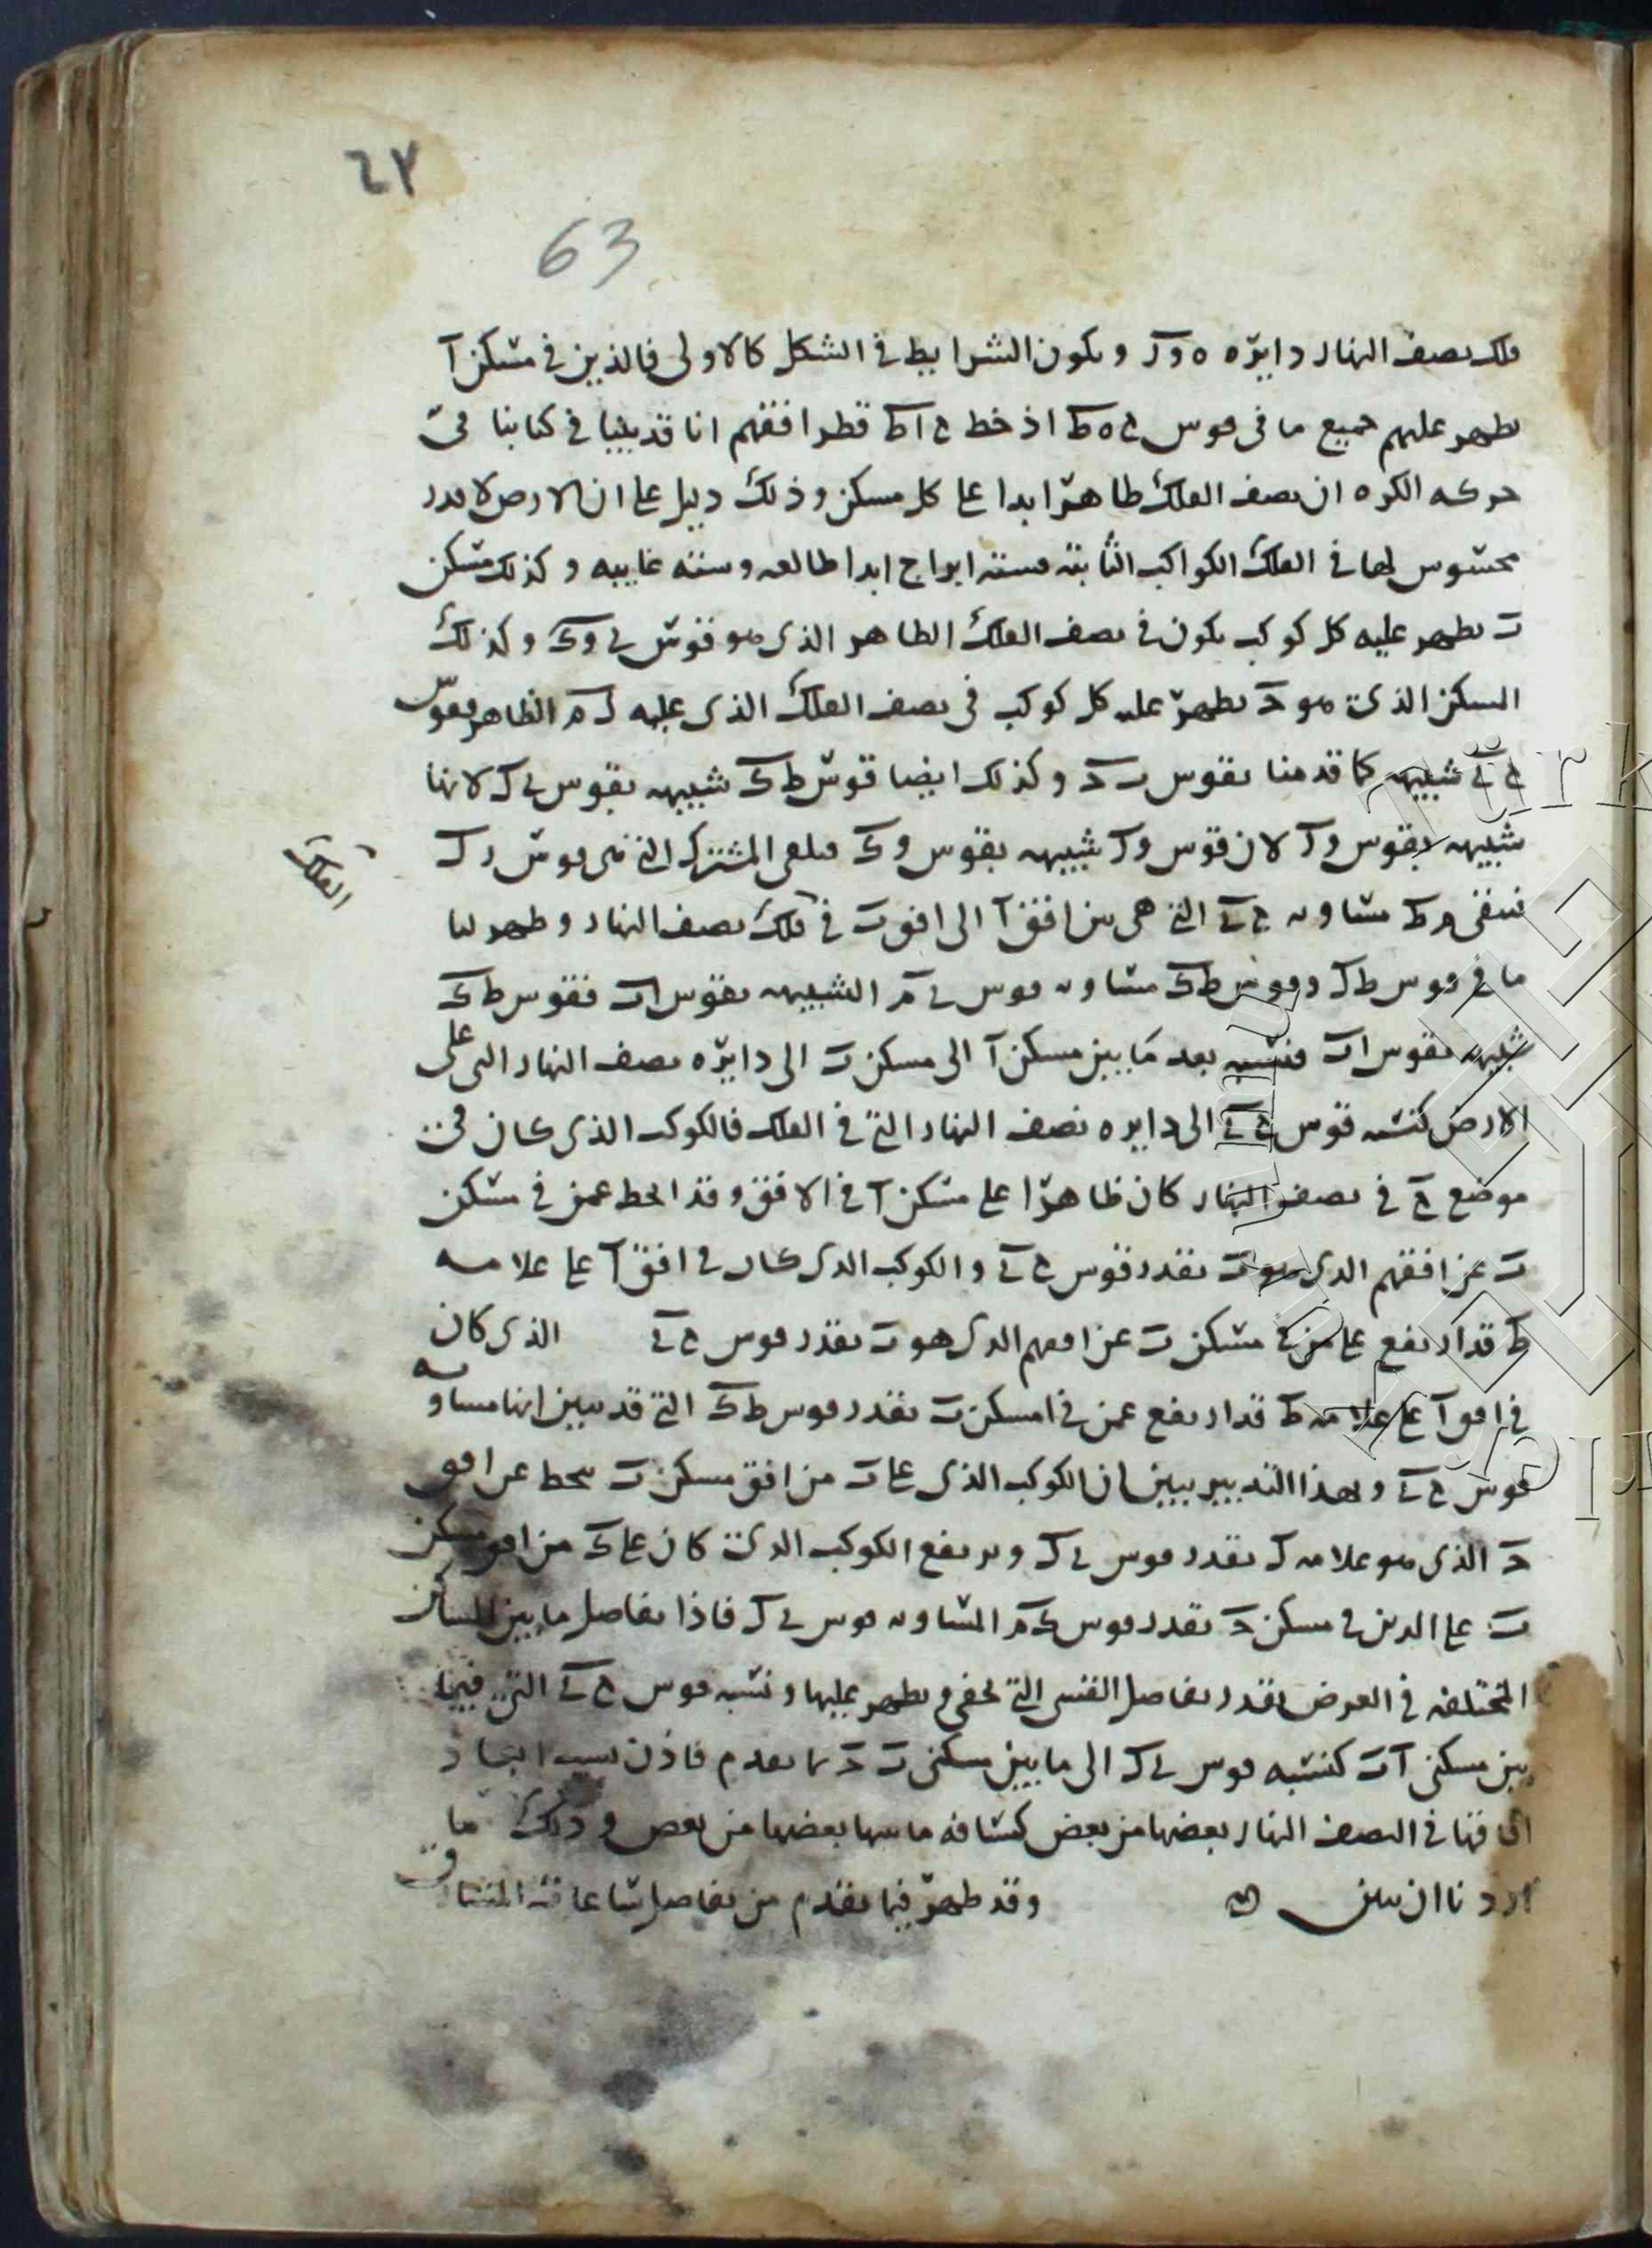 ٦٧
63
فلك نصف النهار دايرة ه و ز ويكون الشرايط في الشكل كالاولى فالذين في مسكن آ
يظهر عليهم جميع ما في قوس ح ه ط اذ خط ح ا ط قطر افقهم انا قد بينا في كتابنا في
حركه الكره ان نصف الفلك ظاهر ابدا على كل مسكن وذلك دليل على ان الارض لا قدر
محسوس لها في الفلك الكواكب الثابتة فستة ابراج ابدا طالعه وسته غايبه وكذلك مسكن
ب يظهر عليه كل كوكب يكون في نصف الفلك الظاهر الذي هو قوس ي و ك وكذلك
المسكن الذي هو د يظهر عليه كل كوكب في نصف الفلك الذي عليه ل م الظاهر فقوس
ح ي شبيهه كما قدمنا بقوس وكذلك ايضا قوس ط ك شبيهه بقوس ي ل لانها
شبيهه بقوس لان قوس شبيهه بقوس فنلقى المشتركه التي هي قوس
الفلك
فتبقى مساويه ح ي التي هي من افق آ الى افق ب في فلك نصف النهار وظهر لنا
ما في قوس ط ك وقوس ط ك مساويه قوس الشبيهه بقوس ا ب فقوس ط ك
شبيهه بقوس ا ب فنسبه بعد ما بين مسكن آ الى مسكن ب الى دايرة نصف النهار التي على
الارض كنسبه قوس ح ي الى دايره نصف النهار التي في الفلك فالكوكب الذي كان في
موضع ح في نصف النهار كان ظاهرا على مسكن آ في الافق وقد انحط عمن في مسكن
ب عن افقهم الذي هو ب بقدر قوس ح ي والكوكب الذي كان في افق آ على علامه
ط قد ارتفع على من في مسكن ب عن افقهم الذي هو ب بقدر قوس ح ي الذي كان
في افق آ على علامه ط قد ارتفع عمن في مسكن ب بقدر قوس ط ك التي قد تبين انها مساويه
قوس ح ي وبهذا التدبير يبين ان الكوكب الذي على من افق مسكن ب ينحط عن افق
د الذي هو علامه ل بقدر قوس ي ل ويرتفع الكوكب الذي كان على ك من افق مسكن
ب على الذين في مسكن د بقدر قوس ك م المساويه قوس ي ل فاذا تفاضل ما بين المساكن
المختلفه في العرض بقدر تفاضل القسي التي تخفى وتظهر عليها ونسبه قوس ح ي التي فيما
بين مسكني آ ب كنسبه قوس ي ل الى ما بين مسكني ب د كما تقدم فاذن نسب ابعاد
افاقها في النصف النهار بعضها من بعض كمسافه ما بينها بعضها من بعض وذلك ما
اردنا ان نبين ه وقد ظهر فيما تقدم من تفاضل ساعات المساوي